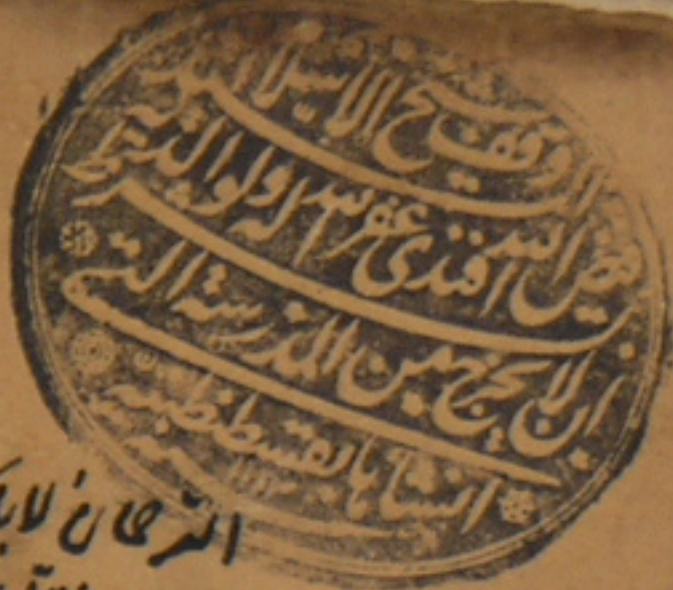 وقف شيخ الاسلام السيد
فيض الله افندى غفر الله له ولوالديه بشرط
ان لا يخرج من المدرسة التى
انشأها بقسطنطينية
١١١٣